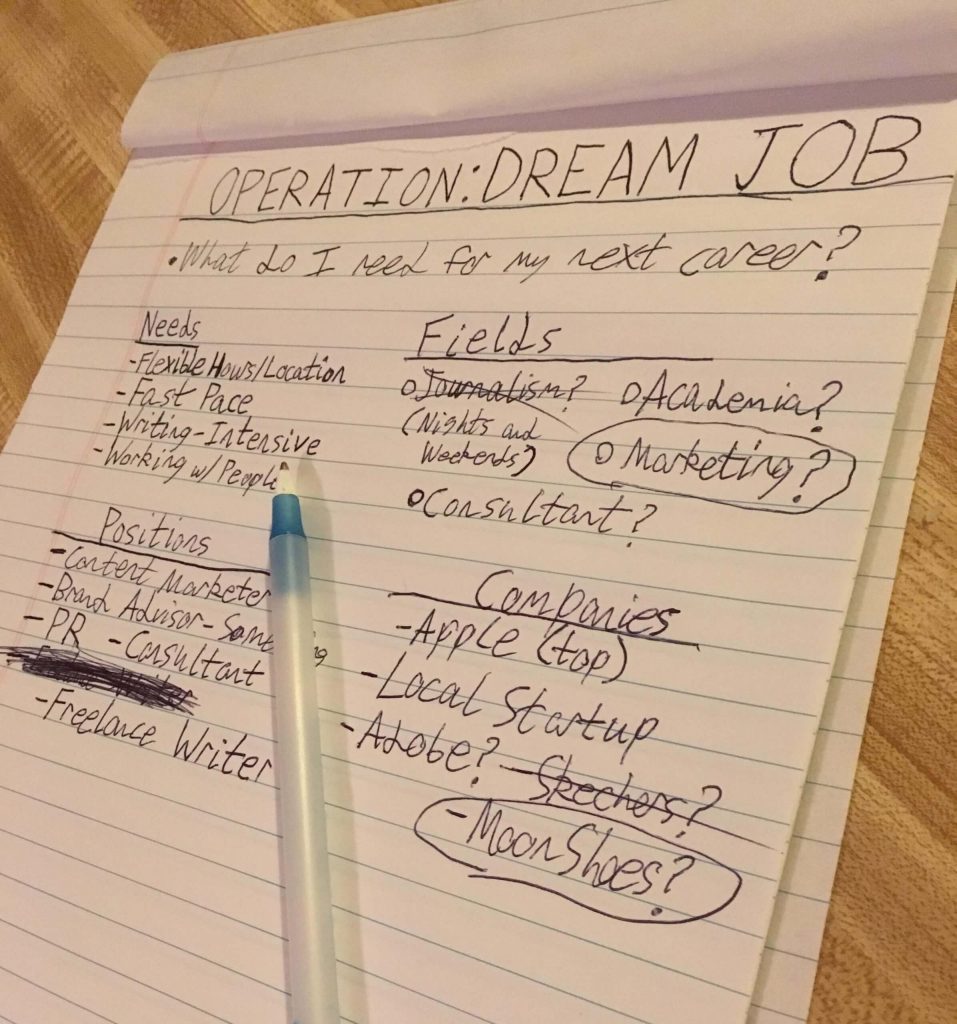 OPERATION: DREAM JOB
•What do I need for my next career?
Needs
-Flexible Hours/Location
-Fast Pace
-Writing-Intensive
-Working w/ People
Fields
Journalism?
(Nights and
Weekends)
Academia?
Marketing?
Consultant?
Positions
-Content Marketer
-Brand Advisor-
-PR -Consultant
-Freelance Writer
Companies
-Apple (top)
-Local Startup
-Adobe? -Skechers?
-MoonShoes?